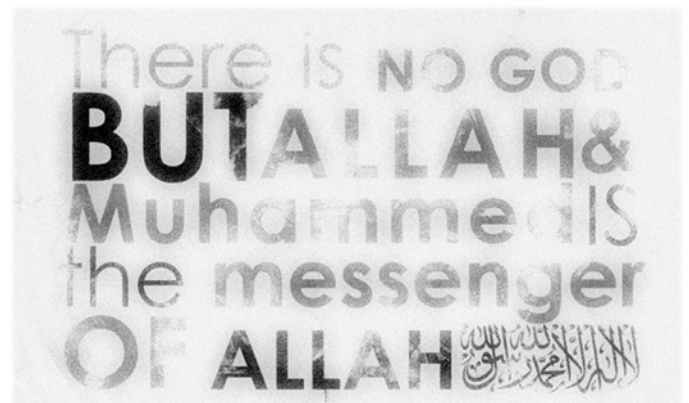 There is NO GOD
BUT ALLAH &
Muhammed IS
the messenger
OF ALLAH لا إله إلا الله محمد رسول الله